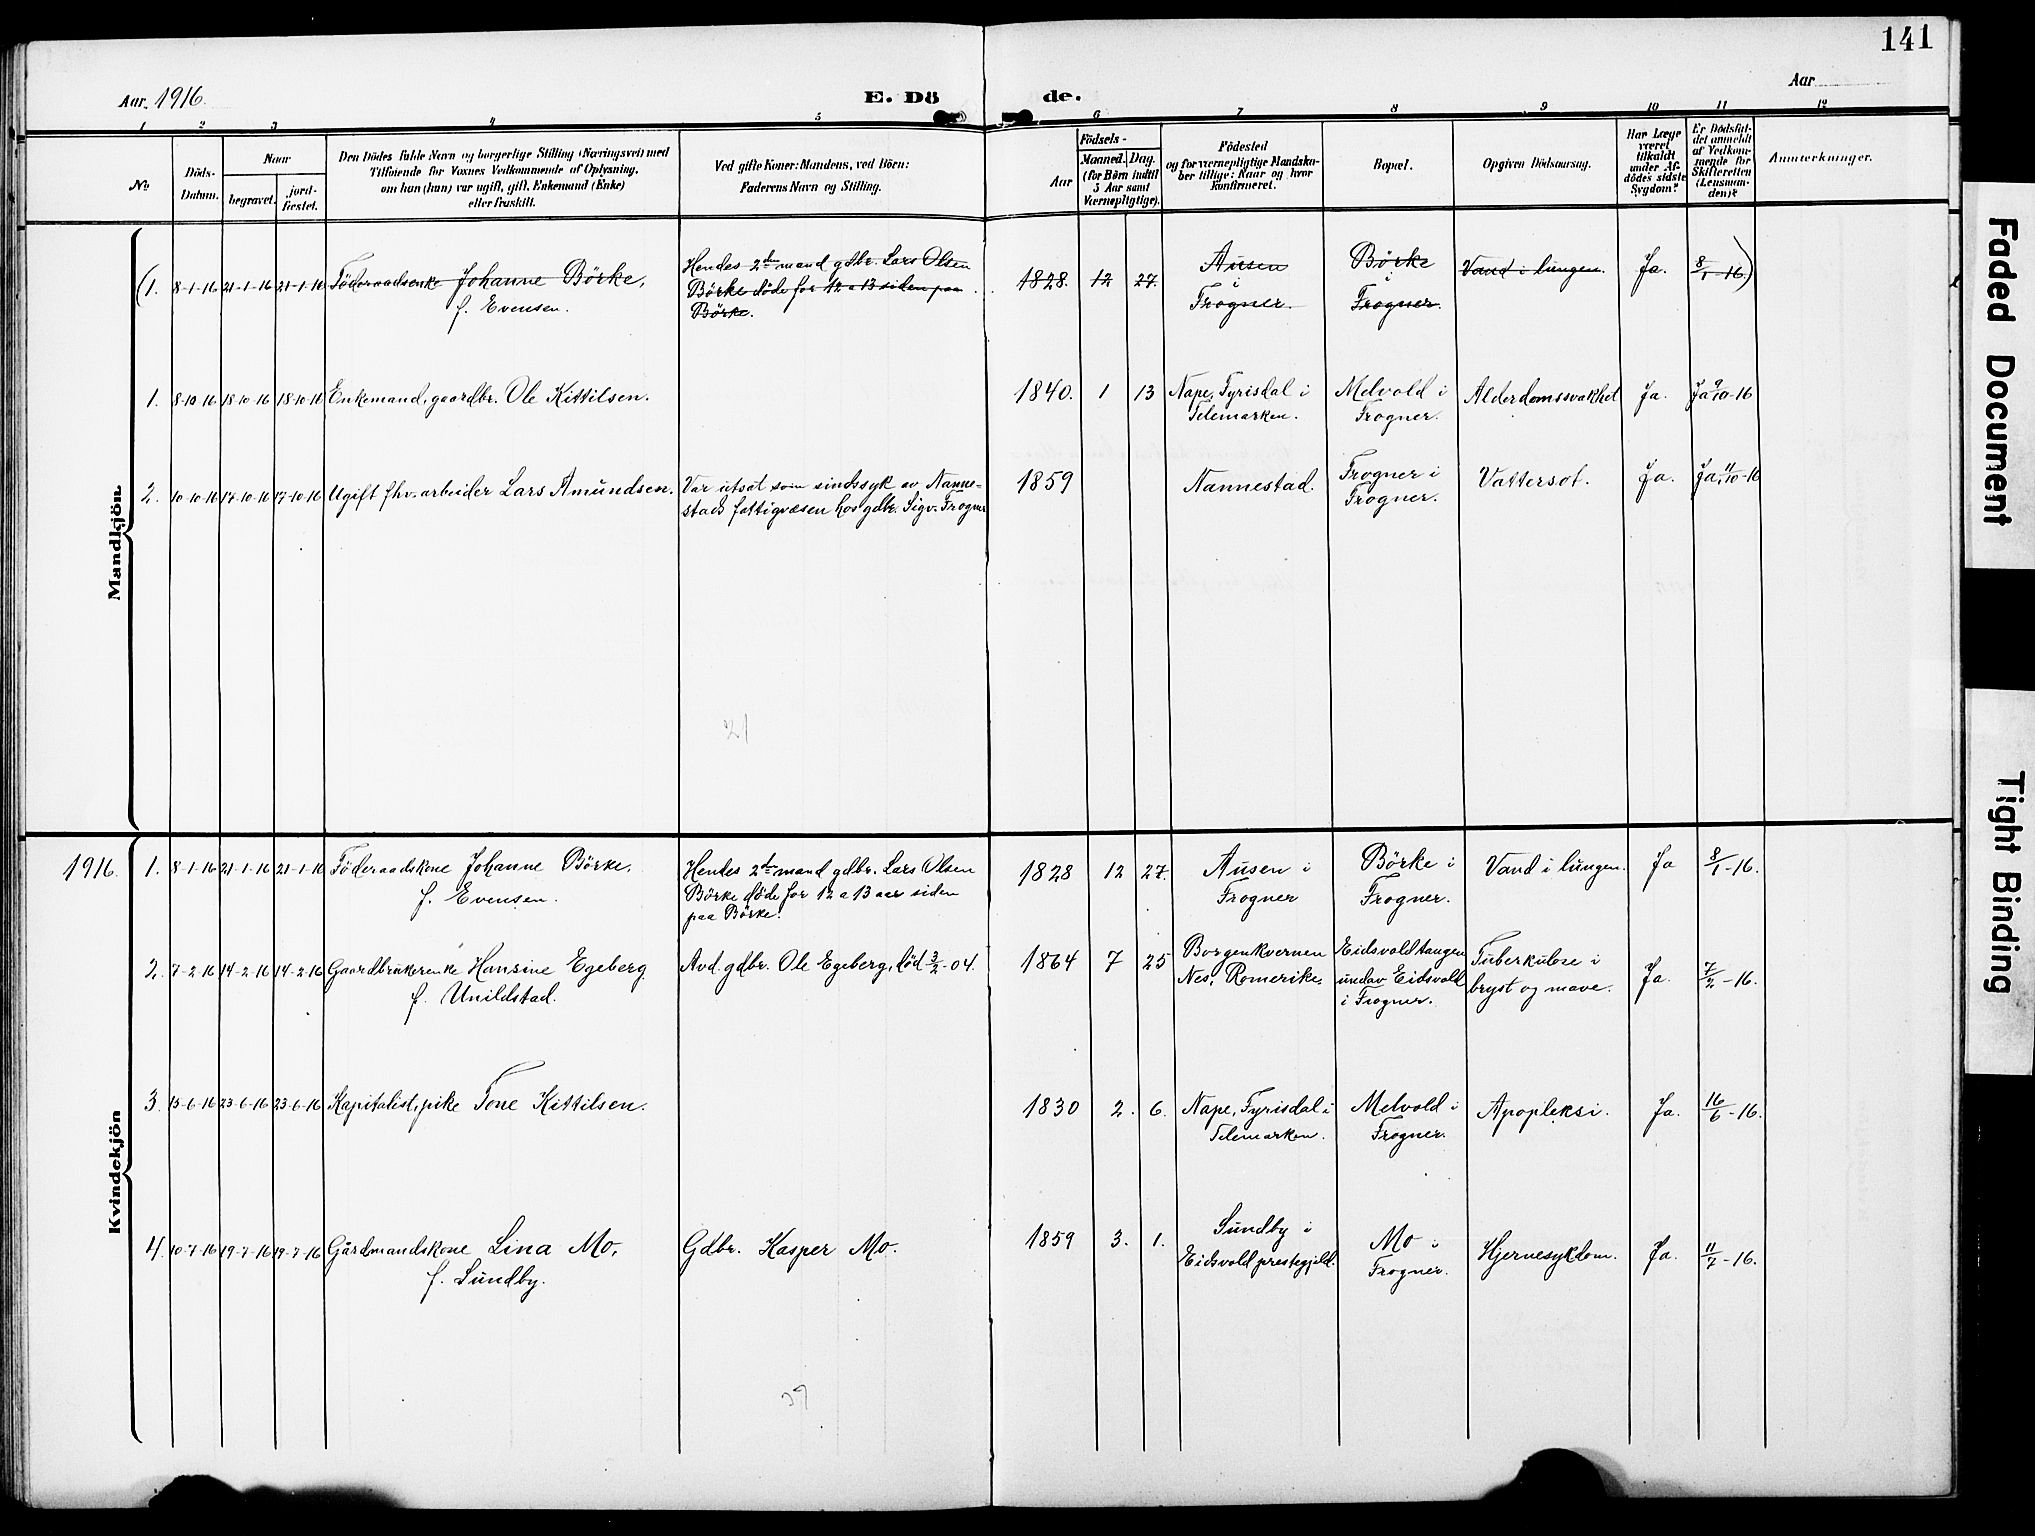 141
Aar 1916.
E. Dö de.
Aar
1 2 3 4 5 6 7 8 9 10 11 12
No
Döds-
Datum.
Naar
begravet.
jord-
fæstet.
Den Dödes fulde Navn og borgerlige Stilling (Næringsvei) med
Tilföiende for Voxnes Vedkommende af Oplysning,
om han (hun) var ugift, gift, Enkemand (Enke)
eller fraskilt.
Ved gifte Koner: Mandens, ved Börn:
Faderens Navn og Stilling.
Födsels-
Aar
Maaned. Dag.
(for Börn indtil
5 Aar samt
Værnepligtige).
Födested
og for værnepligtige Mandska-
ber tillige: Naar og hvor
konfirmeret.
Bopæl.
Opgiven Dödsaarsag.
Har Læge
været
tilkaldt
under Af-
dödes sidste
Sygdom?
Er Dödsfal-
det anmeldt
af Vedkom-
mende for
Skifteretten
(Lensman-
den)?
Anmærkninger.
Mandkjön
(1. 8-1-16 21-1-16 21-1-16 Föderaadsenke Johanne Börke, Hendes 2den mand gdbr. Lars Olsen 1828. 12 27. Ausen Börke Vand i lungen. Ja. 8/1-16)
f. Evensen. Börke döde for 12 a 13 siden paa i i
Börke. Frogner. Frogner.
1. 8-10-16 18-10-16 18-10-16 Enkemand, gaardbr. Ole Kittilsen. 1840. 1 13 Nape, Fyrisdal i Melvold i Alderdomssvakhet Ja. Ja 9/10-16
Telemarken. Frogner.
2. 10-10-16 17-10-16 17-10-16 Ugift fhv. arbeider Lars Amundsen. Var utsat som sindssyk av Nanne- 1859 Nannestad. Frogner i Vattersot. Ja. Ja, 11/10-16
stads fattigvæsen hos gdbr. Sigv. Frogner Frogner.
21
Kvindekjön
1916. 1. 8-1-16 21-1-16 21-1-16 Föderaadskone Johanne Börke, Hendes 2den mand gdbr. Lars Olsen 1828 12 27. Ausen i Börke i Vand i lungen. Ja 8/1-16.
f. Evensen. Börke döde for 12 a 13 aar siden Frogner Frogner.
paa Börke.
2. 7-2-16 14-2-16 14-2-16 Gaardbrukerenke Hansine Egeberg Avd. gdbr. Ole Egeberg, död 3/2-04. 1864 7 25 Borgenkvernen Eidsvoldtangen Tuberkulose i Ja. 7/2-16.
f. Unildstad. Nes, Romerike. undav Eidsvold bryst og mave.
i Frogner.
3. 15-6-16 23-6-16 23-6-16 Kapitalist, pike Tone Kittilsen. 1830 2. 6. Nape, Fyrisdal i Melvold i Apopleksi. Ja. 16/6-16.
Telemarken. Frogner.
4. 10-7-16 19-7-16 19-7-16 Gårdmandskone Lina Mo, Gdbr. Kasper Mo. 1859 3. 1. Sundby i Mo i Hjernesykdom. Ja. 11/7-16.
f. Sundby. Eidsvold prestegjeld. Frogner.
Faded Document
Tight Binding